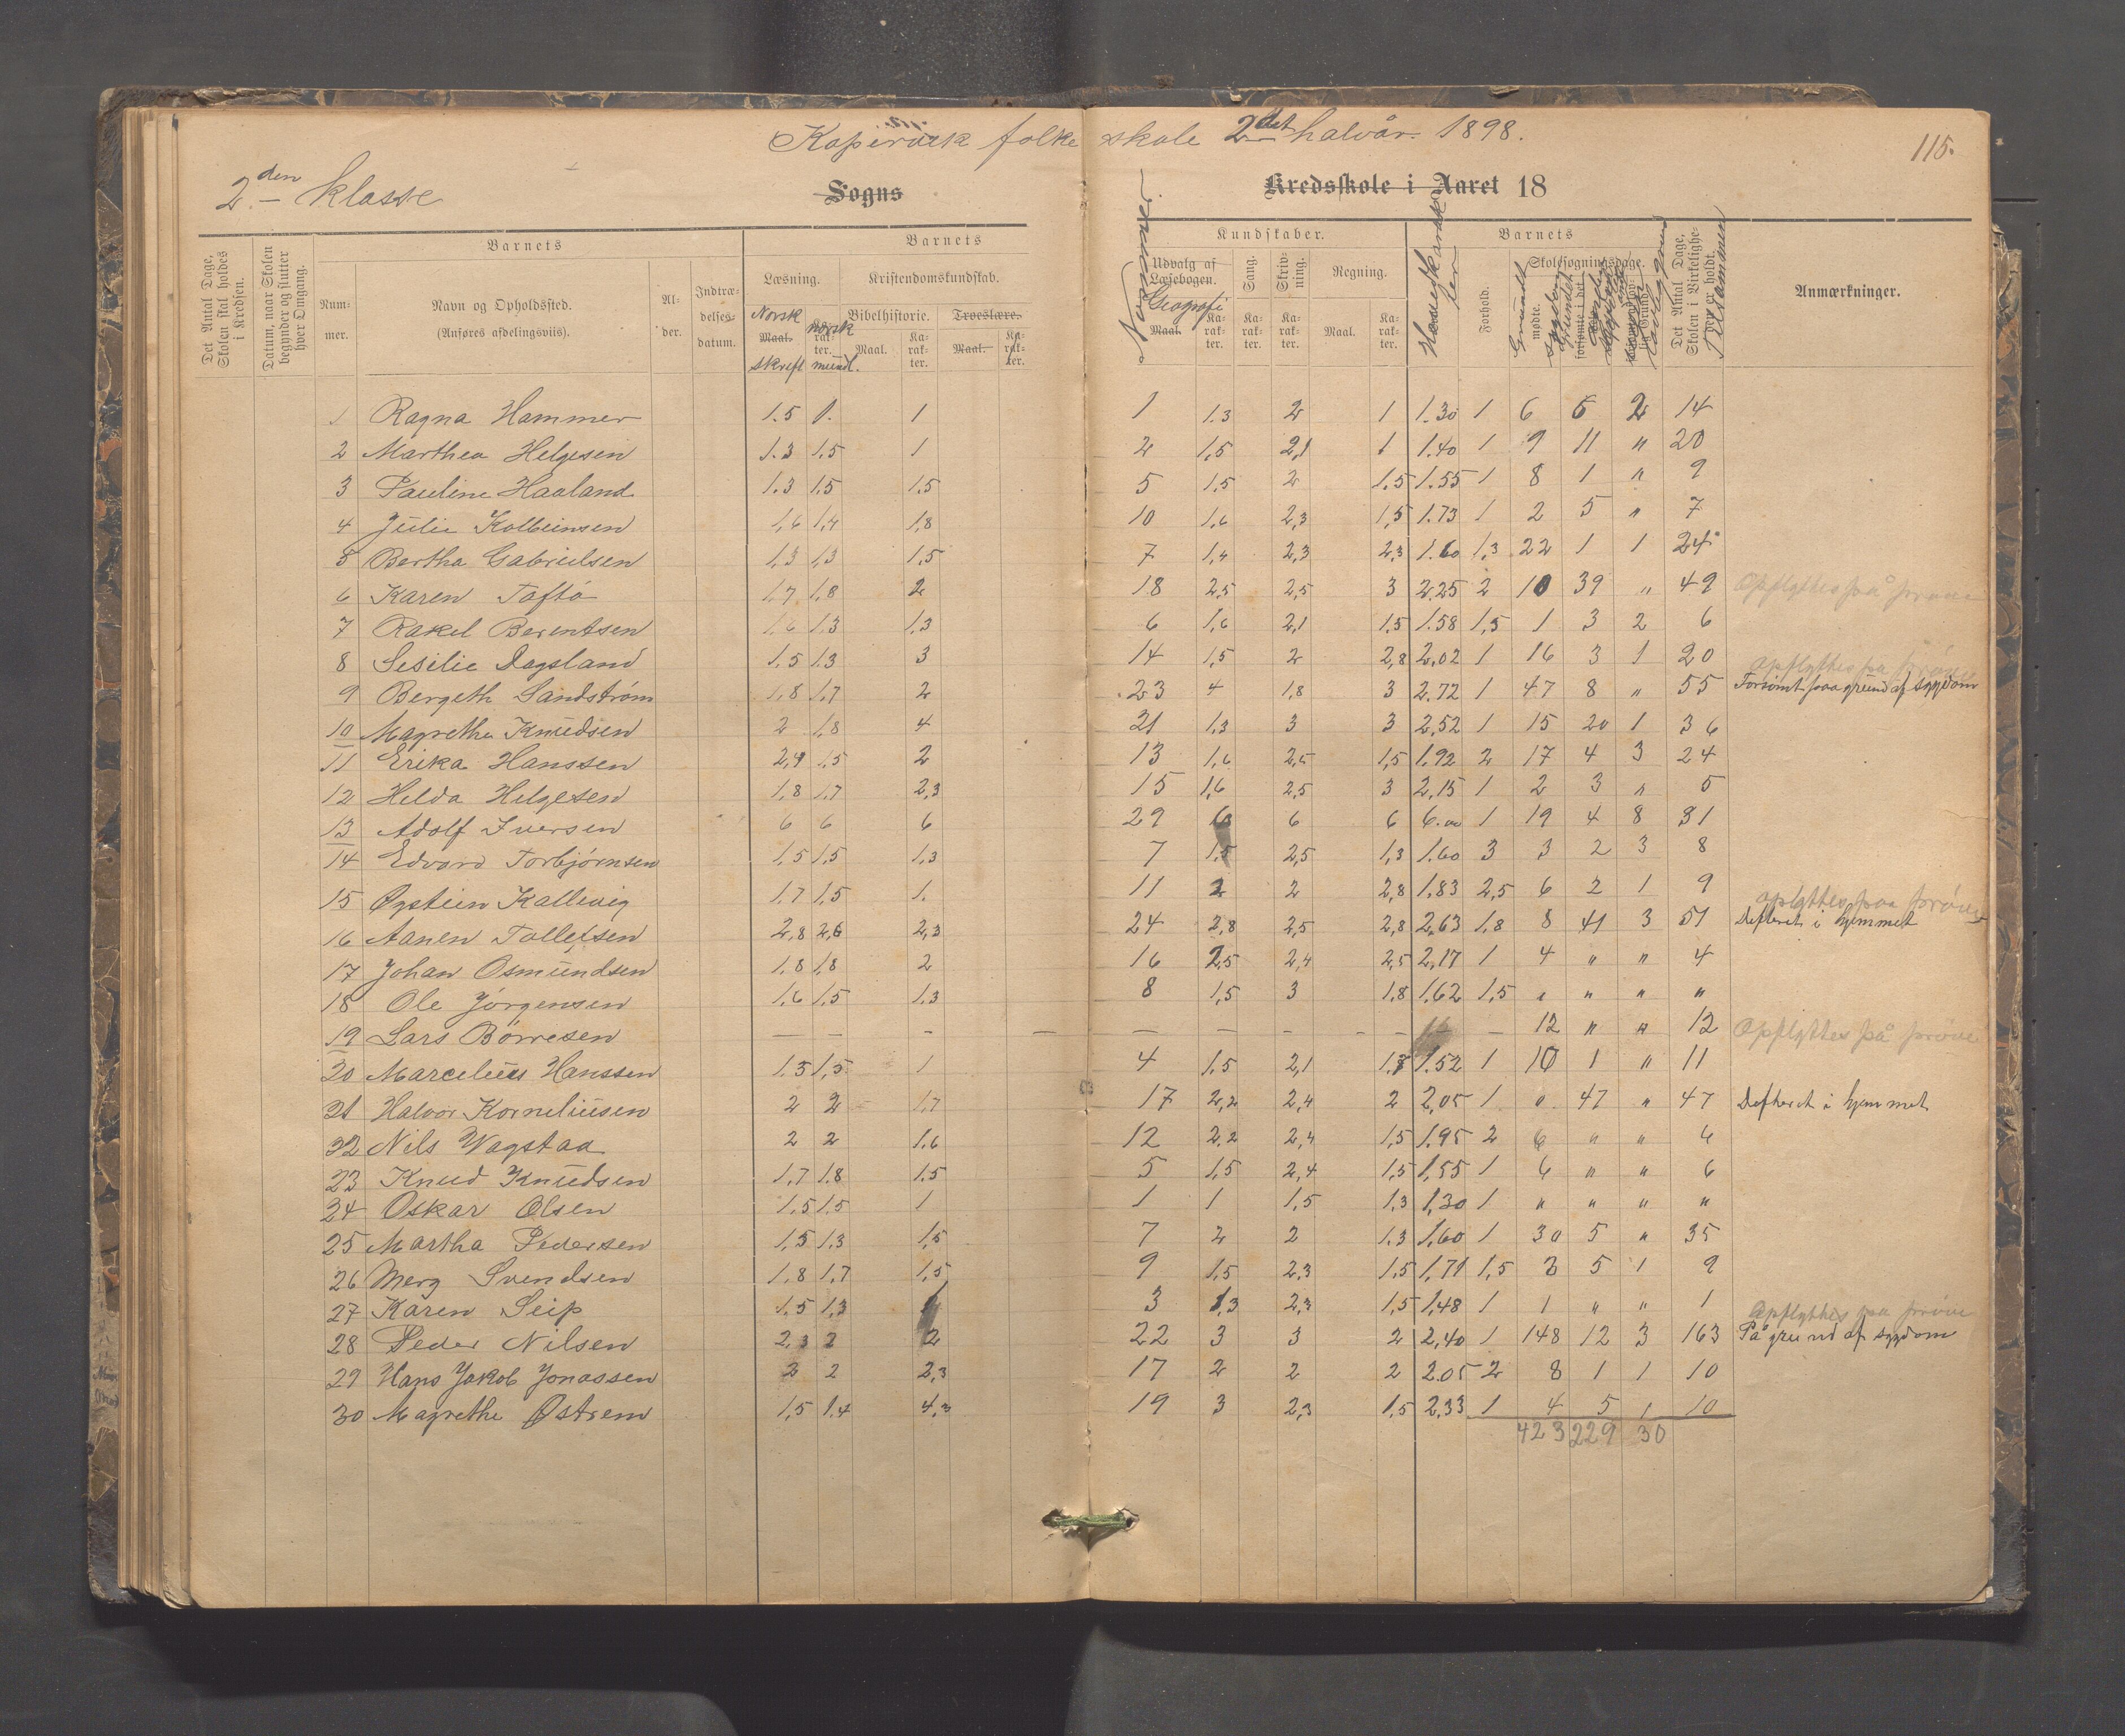 Kopervik folkeskole 2det halvår 1898.
115.
2den klasse
Sogns Kredsskole i Aaret 18
Det Antal Dage, Skolen skal holdes i Kredsen.
Datum, naar Skolen begynder og slutter hver Omgang.
Barnets
Barnets
Kundskaber.
Barnets
Nummer.
Navn og Opholdssted.
(Anføres afdelingsviis).
Alder.
Indtrædelsesdatum.
Læsning.
Kristendomskundskab.
Bibelhistorie.
Troeslære.
Norsk
Maal.
skrift
norsk
Karakter.
mundl.
Maal.
Karakter.
Maal.
Karakter.
Nummer.
Udvalg af Læsebogen.
Geografi
Maal.
Karakter.
Sang.
Karakter.
Skrivning.
Karakter.
Regning.
Maal.
Karakter.
Hovedkarakter
Forhold.
Skolesøgningsdage.
mødte.
forsømte i det
Det Antal Dage, Skolen i Virkeligheden er holdt.
Tilsammen
Anmærkninger.
1 Ragna Hammer 1.5 1. 1 1 1.3 2 1 1.30 1 6 6 2 14
2 Marthea Helgesen 1.3 1.5 1 2 1,5 2,1 1 1.40 1 9 11 " 20
3 Pauline Haaland 1.3 1.5 1.5 5 1,5 2 1.5 1.55 1 8 1 " 9
4 Julie Kolbeinsen 1,6 1,4 1,8 10 1,6 2,3 1,5 1.73 1 2 5 " 7
5 Bertha Gabrielsen 1,3 1,3 1,5 7 1,4 2,3 2,3 1.60 1,3 22 1 1 24
6 Karen Taftø 1,7 1,8 2 18 2,5 2,5 3 2.25 2 10 39 " 49 Opflyttes på prøve
7 Rakel Berentsen 1.6 1.3 1.3 6 1,6 2,1 1.5 1.58 1,5 1 3 2 6
8 Sesilie Dagsland 1.5 1.3 3 14 1,5 2 2,8 2,02 1 16 3 1 20
Opflyttes paa prøve
9 Bergeth Sandstrøm 1,8 1,7 2 23 4 1,8 3 2.72 1 47 8 " 55 Forsømt paa grund af sygdom
10 Magrethe Knudsen 2 1,8 4 21 1,3 3 3 2,52 1 15 20 1 36
11 Erika Hanssen 2,4 1.5 2 13 1,6 2,5 1,5 1.92 2 17 4 3 24
12 Helda Helgesen 1,8 1,7 2,3 15 1,6 2,5 3 2,15 1 2 3 " 5
13 Adolf Iversen 6 6 6 29 6 6 6 6.00 1 19 4 8 31
14 Edvard Torbjørnsen 1,5 1,5 1,3 7 1,5 2,5 1,3 1.60 3 3 2 3 8
15 Øystein Kallevig 1.7 1,5 1. 11 2 2 2,8 1,83 2,5 6 2 1 9
opflyttes paa prøve
16 Aanen Tollefsen 2,8 2,6 2,3 24 2,8 2,5 2,8 2,63 1,8 8 41 3 51 Defteret i hjemmet
17 Johan Osmundsen 1.8 1,8 2 16 2,5 2,4 2,5 2,17 1 4 " " 4
18 Ole Jørgensen 1,6 1,5 1.3 8 1,5 3 1.8 1.62 1,5 " " " "
19 Lars Børresen — — - — — — - - - — 12 " " 12 Opflyttes på prøve
20 Marcelius Hanssen 1.3 1,5 1 4 1.5 2,1 1.3 1.52 1 10 1 " 11
21 Halvor Korneliusen 2 2 1,7 17 2,2 2,4 2 2,05 1 0 47 " 47 Defteret i hjemmet
22 Nils Vagstaa 2 2 1.6 12 2,2 2,4 1,5 1.95 2 6 " " 6
23 Knud Knudsen 1,7 1.8 1.5 5 1,5 2,4 1,5 1,55 1 6 " " 6
24 Oskar Olsen 1.5 1.5 1 1 1 1,5 1,3 1,30 1 " " " "
25 Martha Pedersen 1,5 1.3 1,5 7 2 2 1.3 1,60 1 30 5 " 35
26 Merg Svendsen 1,8 1,7 1,5 9 1,5 2,3 1,5 1,71 1,5 3 5 1 9
27 Karen Seip 1.5 1,3 1 3 1,3 2,3 1,5 1,48 1 1 " " 1
Opflyttes paa prøve
28 Peder Nilsen 2,3 2 2 22 3 3 2 2,40 1 148 12 3 163 På grund af sygdom
29 Hans Jakob Jonassen 2 2 2,3 17 2 2 2 2.05 2 8 1 1 10
30 Magrethe Østrem 1,5 1.4 4,3 19 3 2,3 1,5 2,33 1 4 5 1 10
423 229 30